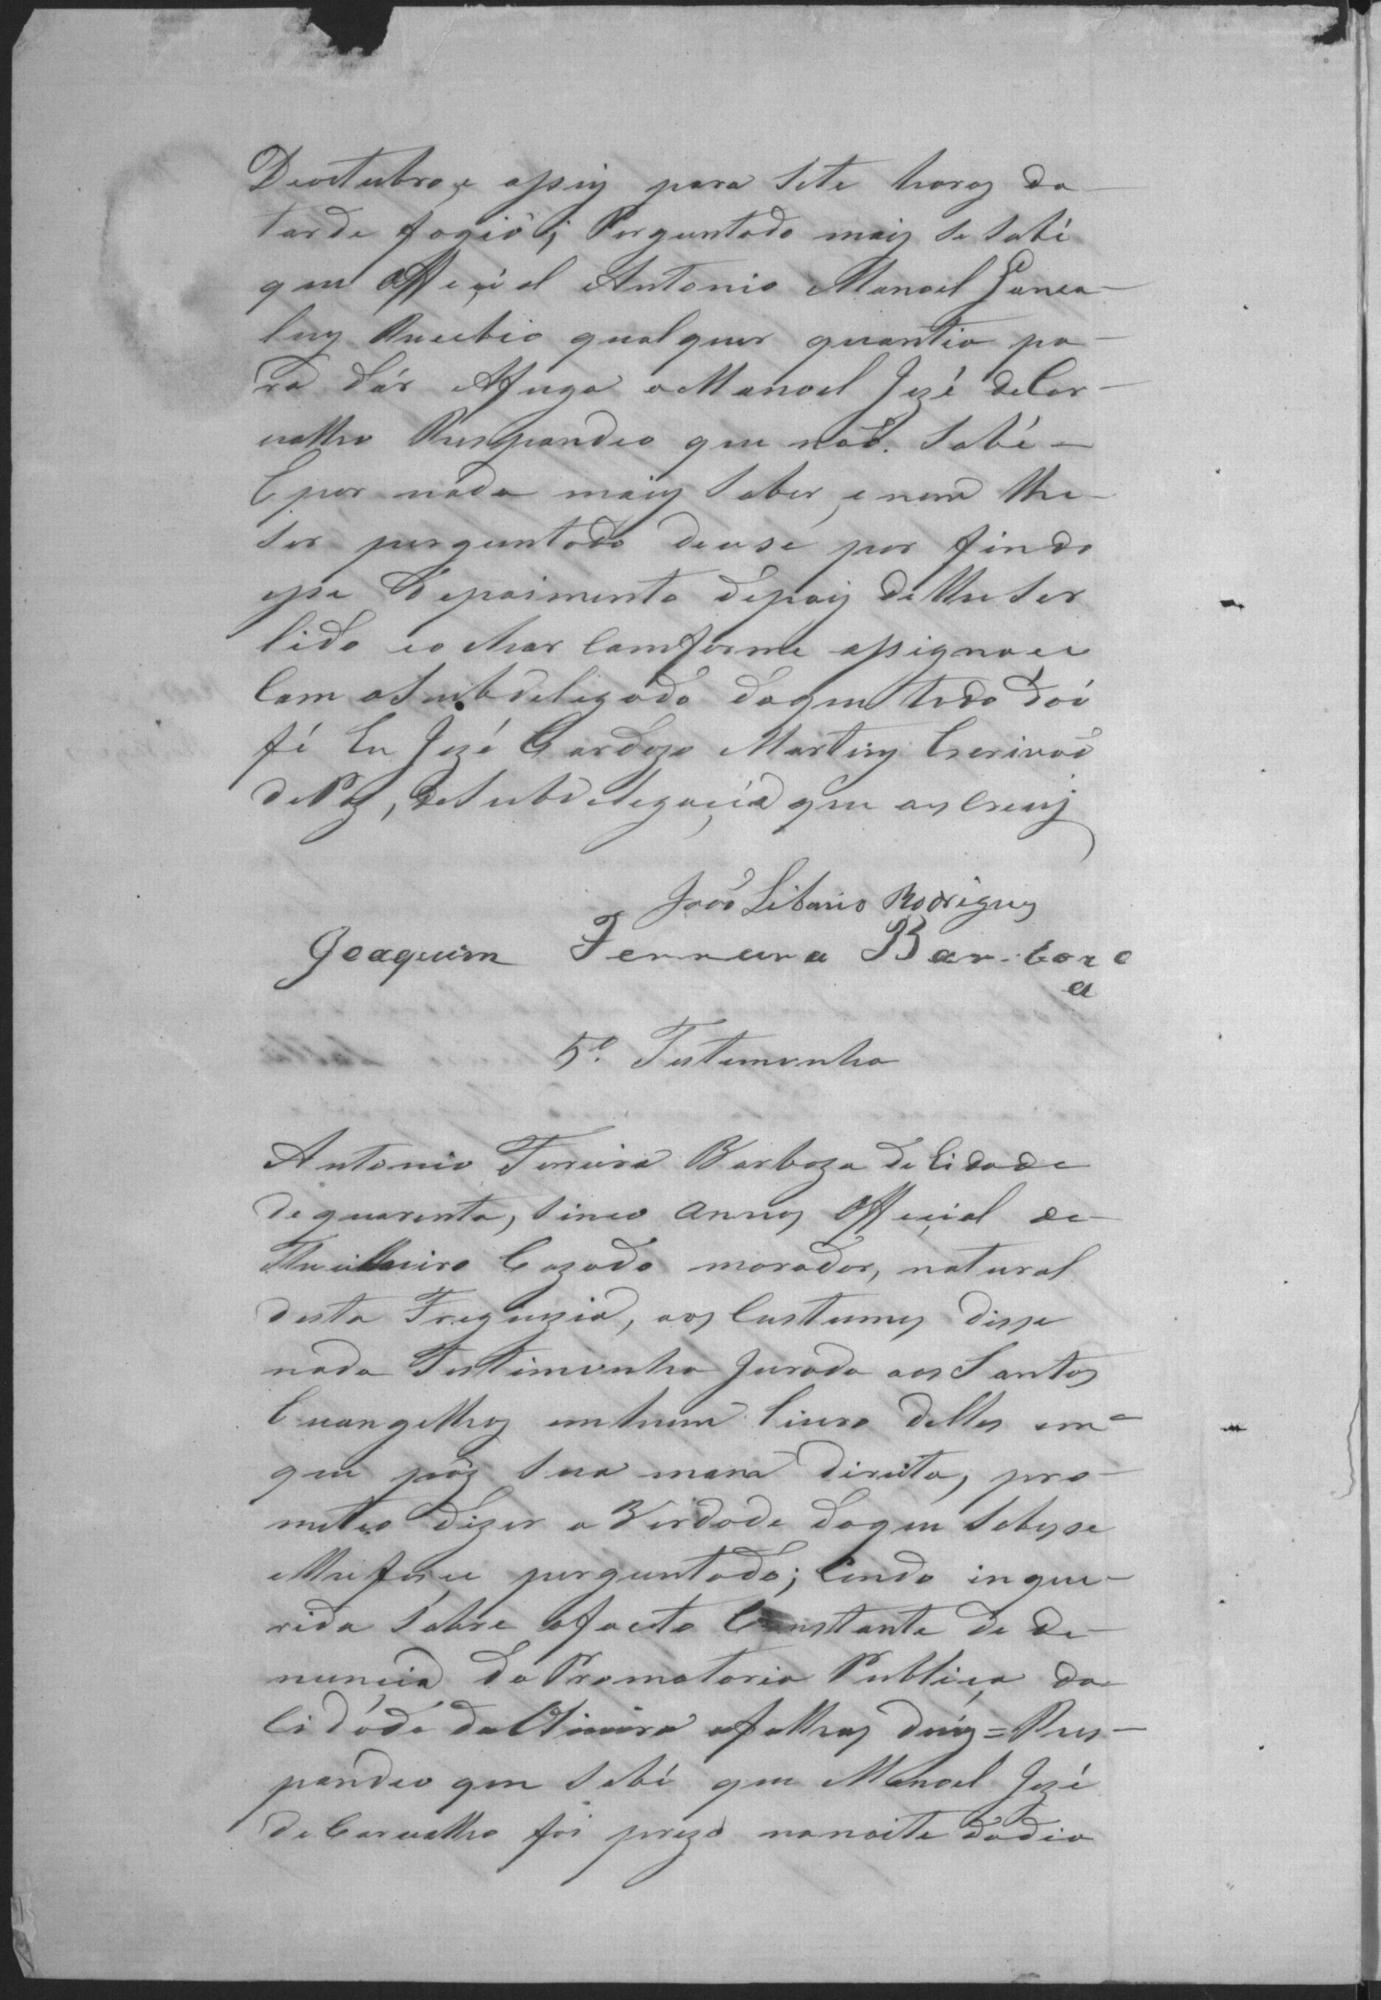 Deoutubro, e assim para sete horas da
tarde fogio; Perguntado mais se sabi
que Official Antonio Manoel Gonca
lves Ricibio qualquer quantia pa
ra dár afuga a Manoel Jozé deCar
valho Respondeo que naõ. Sabi
E por nada mais saber, e nem lhe
ser perguntado deuse por findo
esse depoimento depois delhe ser
lido eo achar Comforme assignou
Com oSubdelegado doque tudo dou
fé Eu Jozé Cardozo Martins Escrivaõ
dePaz, deSubdelegacia que as Crevy
Joaõ Libanio Rodrigues
Joaquim Ferreira Barboza
5ª Testemunha
Antonio Ferreira Barboza de Cidade
dequarenta, sinco annos Official de
Cazado morador, natural
desta Freguezia, aos Custumes disse
nada Testimunha Jurada aos Santos
Evangelhos emhum Livro delles em
que pôz sua mam direita, pro
meteo dizer a Verdade doque Sobesse
elhefosse perguntado; Cendo inque
rida Sobre ofacto Constante de de
nuncia da Promotoria Publica da
Cidade afolhas duas = Res
pondeo que sabi que Manoel Jozé
deCarvalho foi prezo nanoite dodia